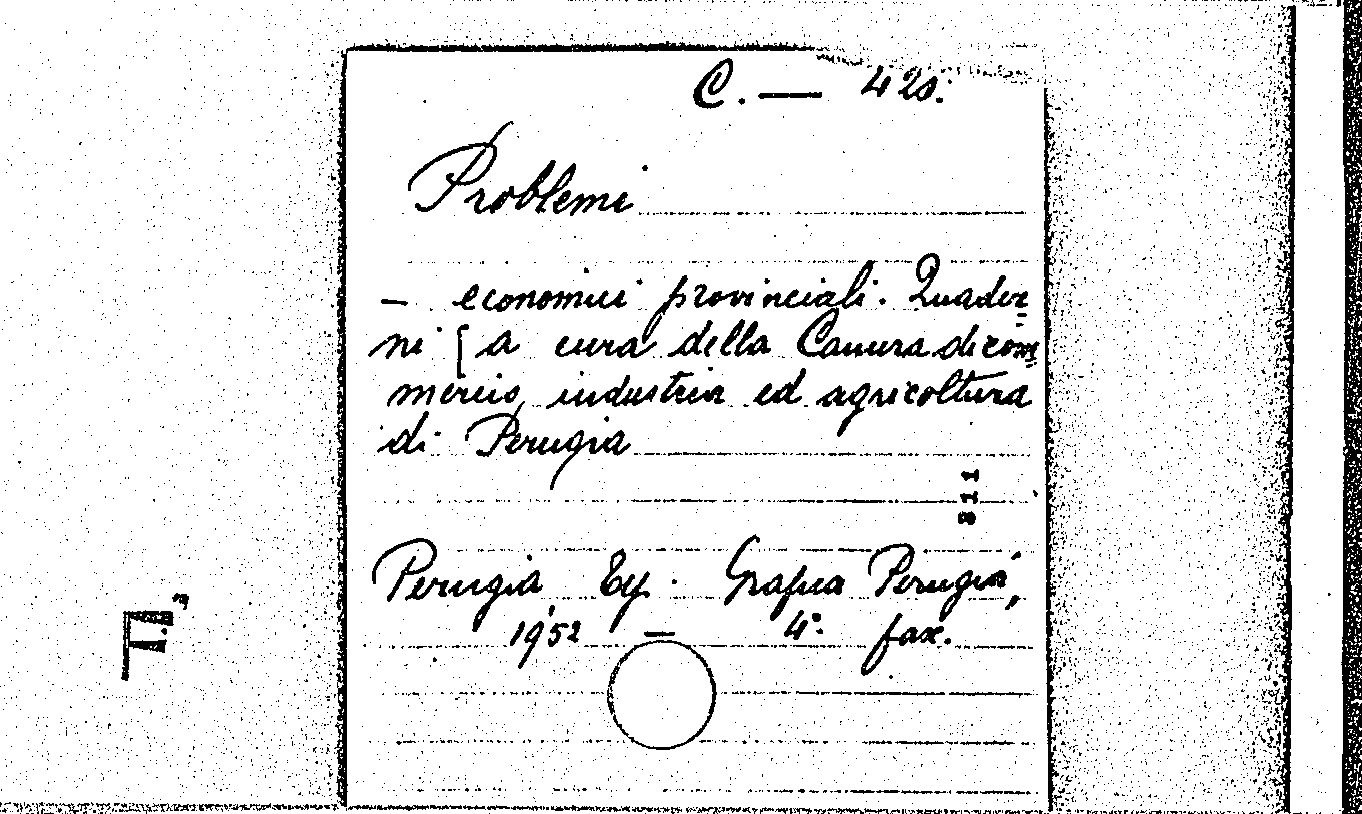 C. — 420.
Problemi
— economici provinciali. Quader=
ni [ a cura della Camera di com=
mercio, industria ed agricoltura
di Perugia
811
Perugia, Tip. Grafica Perugia,
1952 — 4°. fasc.